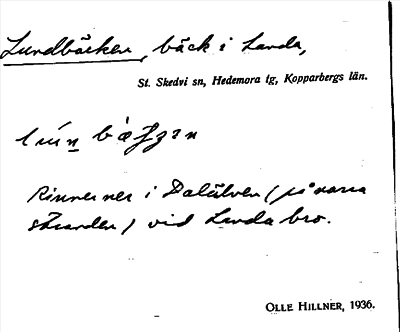 Lundbäcken, bäck i Landa,
St. Skedvi sn, Hedemora tg, Kopparbergs län.
Rinner ner i Dalälven (på norra
stranden) vid Landa bro.
OLLE HILLNER, 1936.